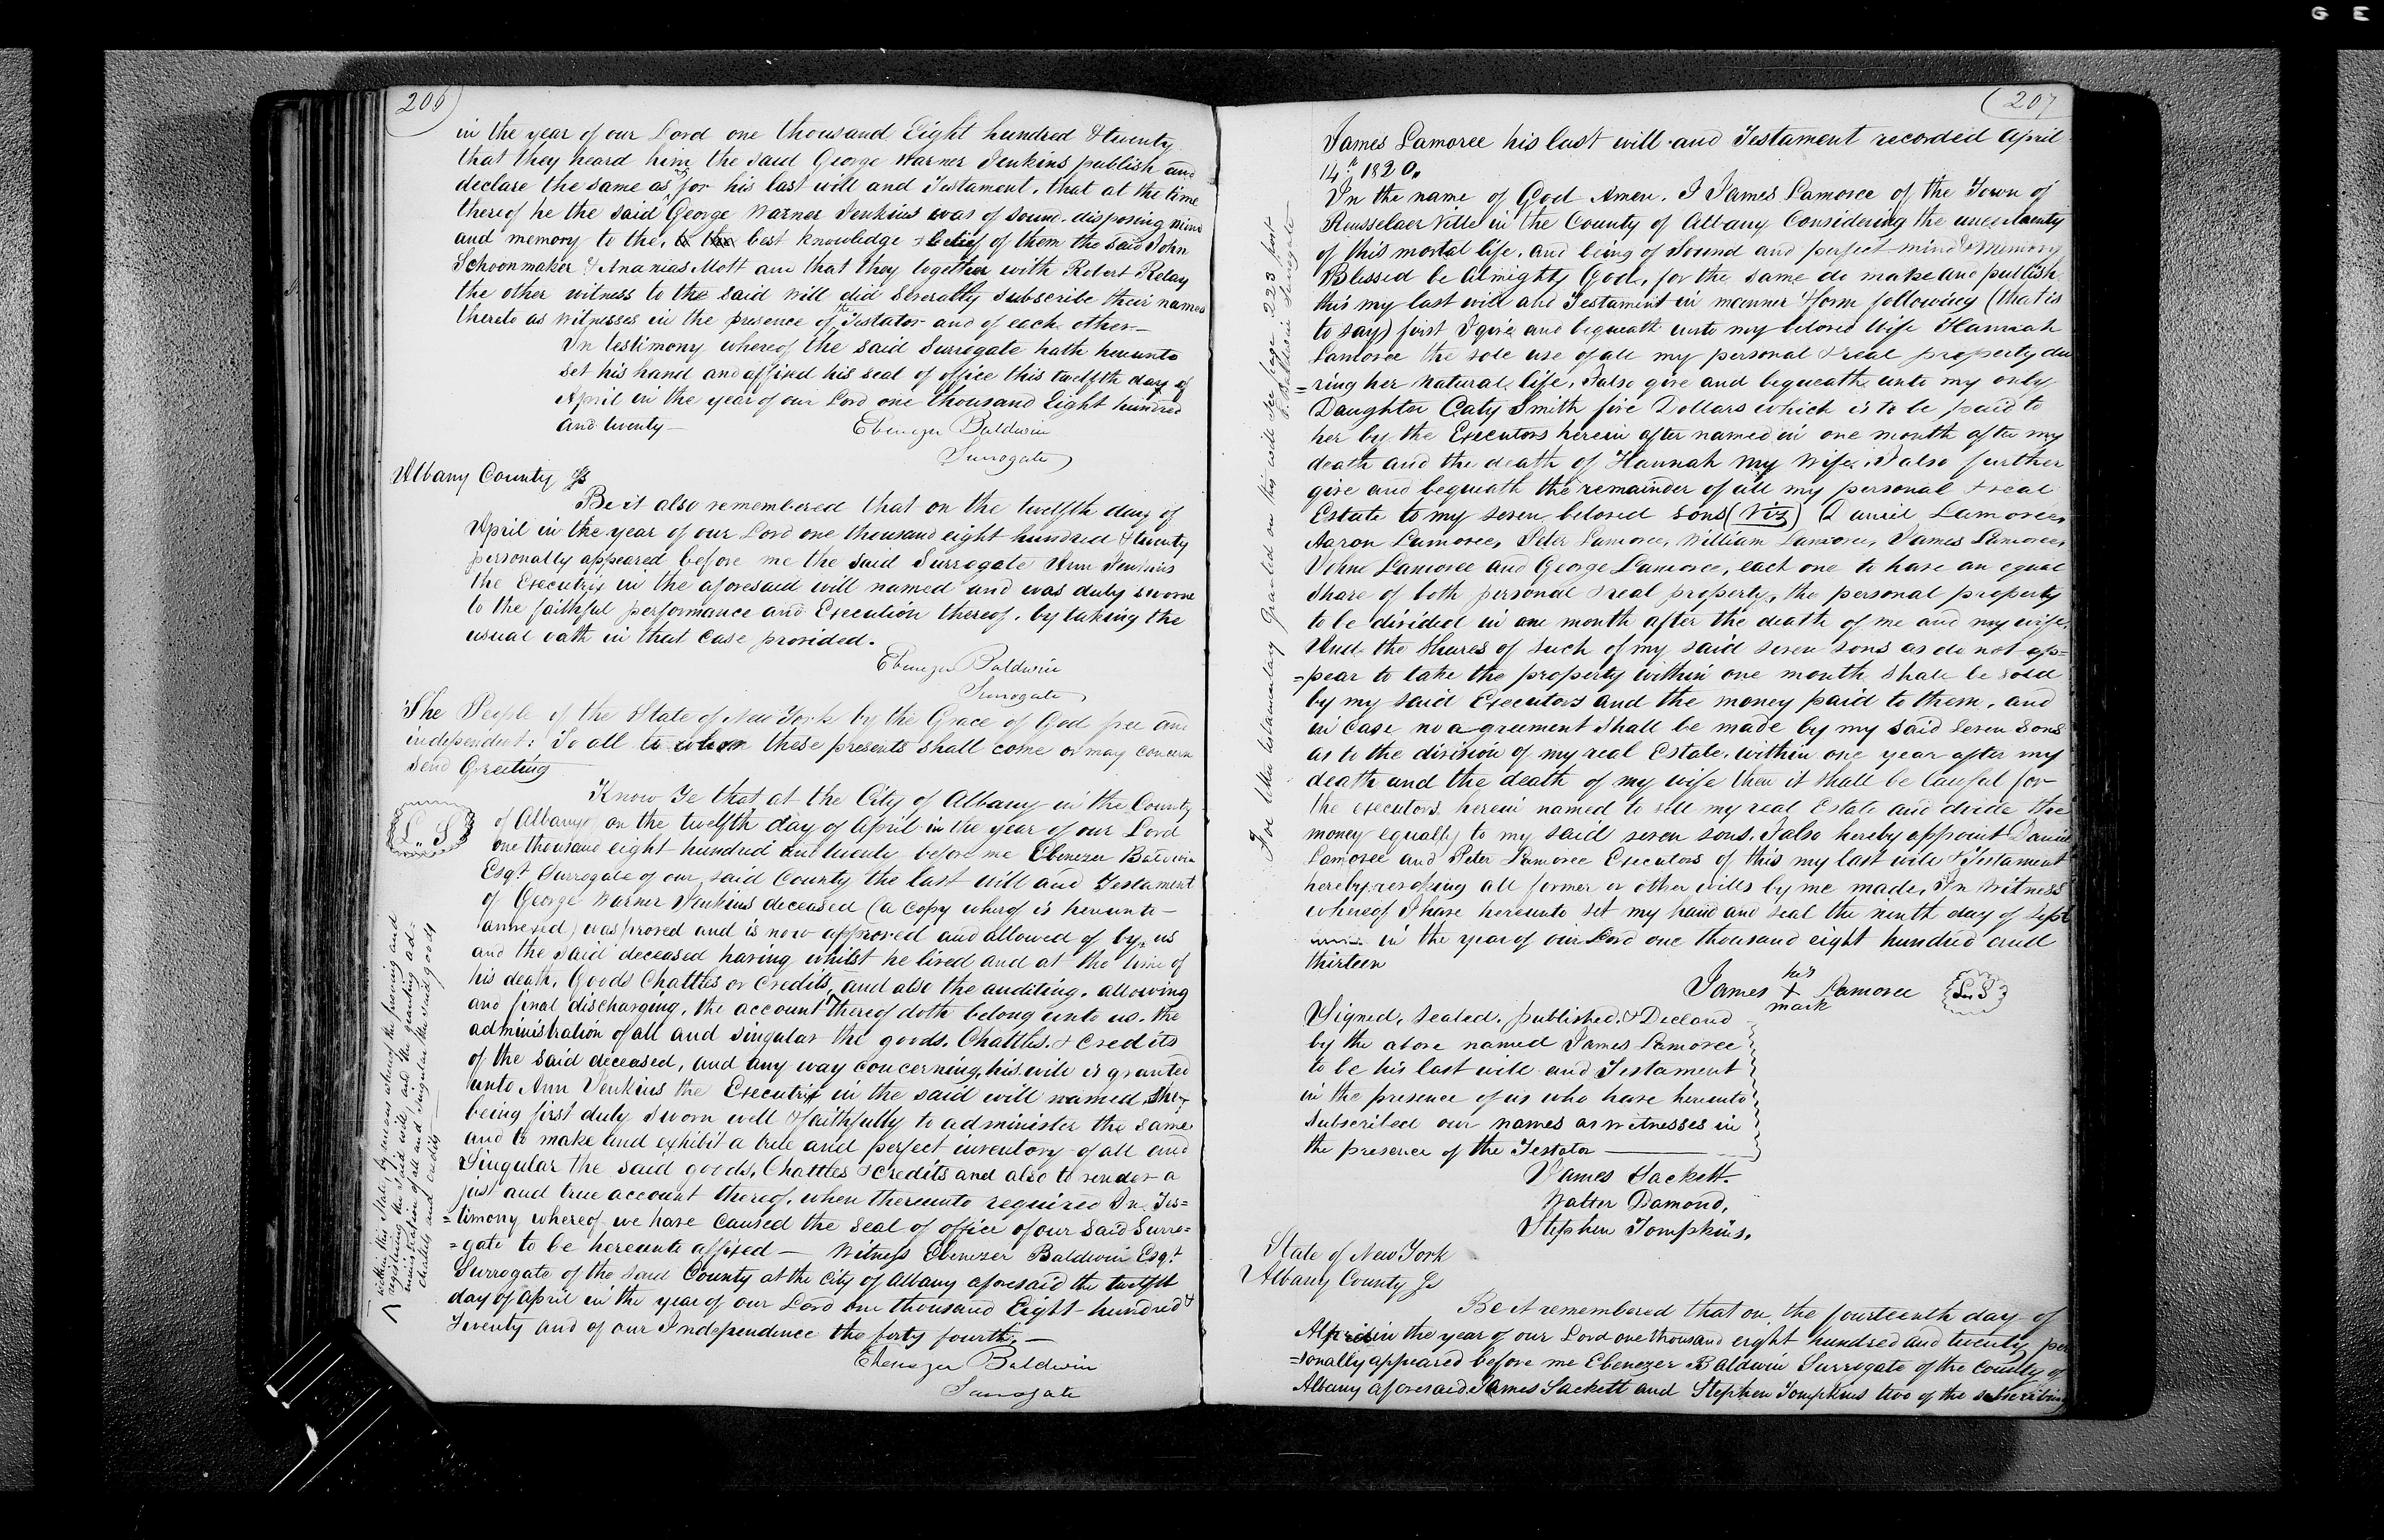 206
in the year of our Lord one thousand Eight hundred & twenty
that they heard him the said George Warner Jenkins publish and
declare the same as & for his last will and Testament, that at the time
thereof he the said George Warner Jenkins was of sound disposing mind
and memory to the, to the best knowledge & belief of them the said John
Schoonmaker & Ananias Mott and that they together with Robert Relay
the other witness to the said will did severally subscribe their names
thereto as witnesses in the presence of the Testator and of each other—
In testimony whereof the said Surrogate hath hereunto
set his hand and affixed his seal of office this twelfth day of
April in the year of our Lord one thousand Eight hundred
and twenty— Ebenezer Baldwin
Surrogate
Albany County Ss
Be it also remembered that on the twelfth day of
April in the year of our Lord one thousand eight hundred & twenty
personally appeared before me the said Surrogate Ann Jenkins
the Executrix in the aforesaid will named and was duly sworn
to the faithful performance and Execution thereof, by taking the
usual oath in that case provided.
Ebenezer Baldwin
Surrogate
The People of the State of New York by the Grace of God free and
independent: To all to whom these presents shall come or may concern
send Greeting
Know Ye that at the City of Albany in the County
L. S of Albany on the twelfth day of April in the year of our Lord
one thousand eight hundred and twenty before me Ebenezer Baldwin
Esqr. Surrogate of our said County the last will and Testament
of George Warner Jenkins deceased (a copy wherof is hereunto
annexed) was proved and is now approved and allowed of by us
and the said deceased having whilst he lived and at the time of
his death, Goods Chattles or Credits, ^ and also the auditing, allowing
and final discharging, the account thereof doth belong unto us, the
administration of all and singular the goods, Chattles, & credits
of the said deceased, and any way concerning, his will is granted
unto Ann Jenkins the Executrix in the said will named, she
being first duly sworn well & faithfully to administer the same
and to make and exhibit a true and perfect inventory of all and
Singular the said goods, Chattles & credits and also to render a
just and true account thereof, when thereunto required In Tes=
=timony whereof we have caused the seal of office of our said Surro=
=gate to be hereunto affixed — Witness Ebenezer Baldwin Esqr.
Surrogate of the said County at the city of Albany aforesaid the twelfth
day of April in the year of our Lord one thousand Eight hundred &
Twenty and of our Independence the forty fourth.—
Ebenezer Baldwin
Surrogate
^ within this State, by means whereof the proving and
registering the said will, and the granting ad=
ministration of all and singular the said goods
chattels and credits
207
James Lamoree his last will and Testament recorded April
14th 1820.
In the name of God Amen. I James Lamoree of the Town of
Rensselaer Ville in the County of Albany Considering the uncertainty
of this mortal life, and being of sound and perfect mind & Memory
Blessed be Almighty God, for the same do make and publish
this my last will and Testament in manner & form following (that is
to say) first I give and bequeath unto my beloved Wife Hannah
Lamoree the sole use of all my personal & real property du
=ring her natural life, I also give and bequeath unto my only
Daughter Caty Smith five Dollars which is to be paid to
her by the Executors herein after named in one month after my
death and the death of Hannah my Wife, I also further
give and bequeath the remainder of all my personal & real
Estate to my seven beloved sons (Viz) Daniel Lamoree,
Aaron Lamoree, Peter Lamoree, William Lamoree, James Lamoree,
John Lamoree and George Lamoree, each one to have an equal
share of both personal & real property, the personal property
to be divided in one month after the death of me and my wife,
And the shares of such of my said seven sons as do not ap=
=pear to take the property within one month shall be sold
by my said Executors and the money paid to them, and
in case no agreement shall be made by my said seven sons
as to the division of my real Estate, within one year after my
death and the death of my wife then it shall be lawful for
the executors, herein named to sell my real Estate and divide the
money equally to my said seven sons, I also hereby appoint Daniel
Lamoree and Peter Lamoree Executors of this my last will & Testament
hereby revoking all former or other wills by me made, In Witness
whereof I have hereunto set my hand and seal the ninth day of Sept
in the year of our Lord one thousand eight hundred and
thirteen
James his X mark Lamoree L.S
Signed, sealed, published, & Declared
by the above named James Lamoree
to be his last will and Testament
in the presence of us who have hereunto
subscribed our names as witnesses in
the presence of the Testator
James Sackett.
Walter Damond,
Stephen Tompkins.
State of New York
Albany County Ss
Be it remembered that on, the fourteenth day of
April in the year of our Lord one thousand eight hundred and twenty per
=sonally appeared before me Ebenezer Baldwin Surrogate of the County of
Albany aforesaid James Sackett and Stephen Tompkins two of the subscribing
For letters testamentary Granted on this will see page 223 post
Surrogate